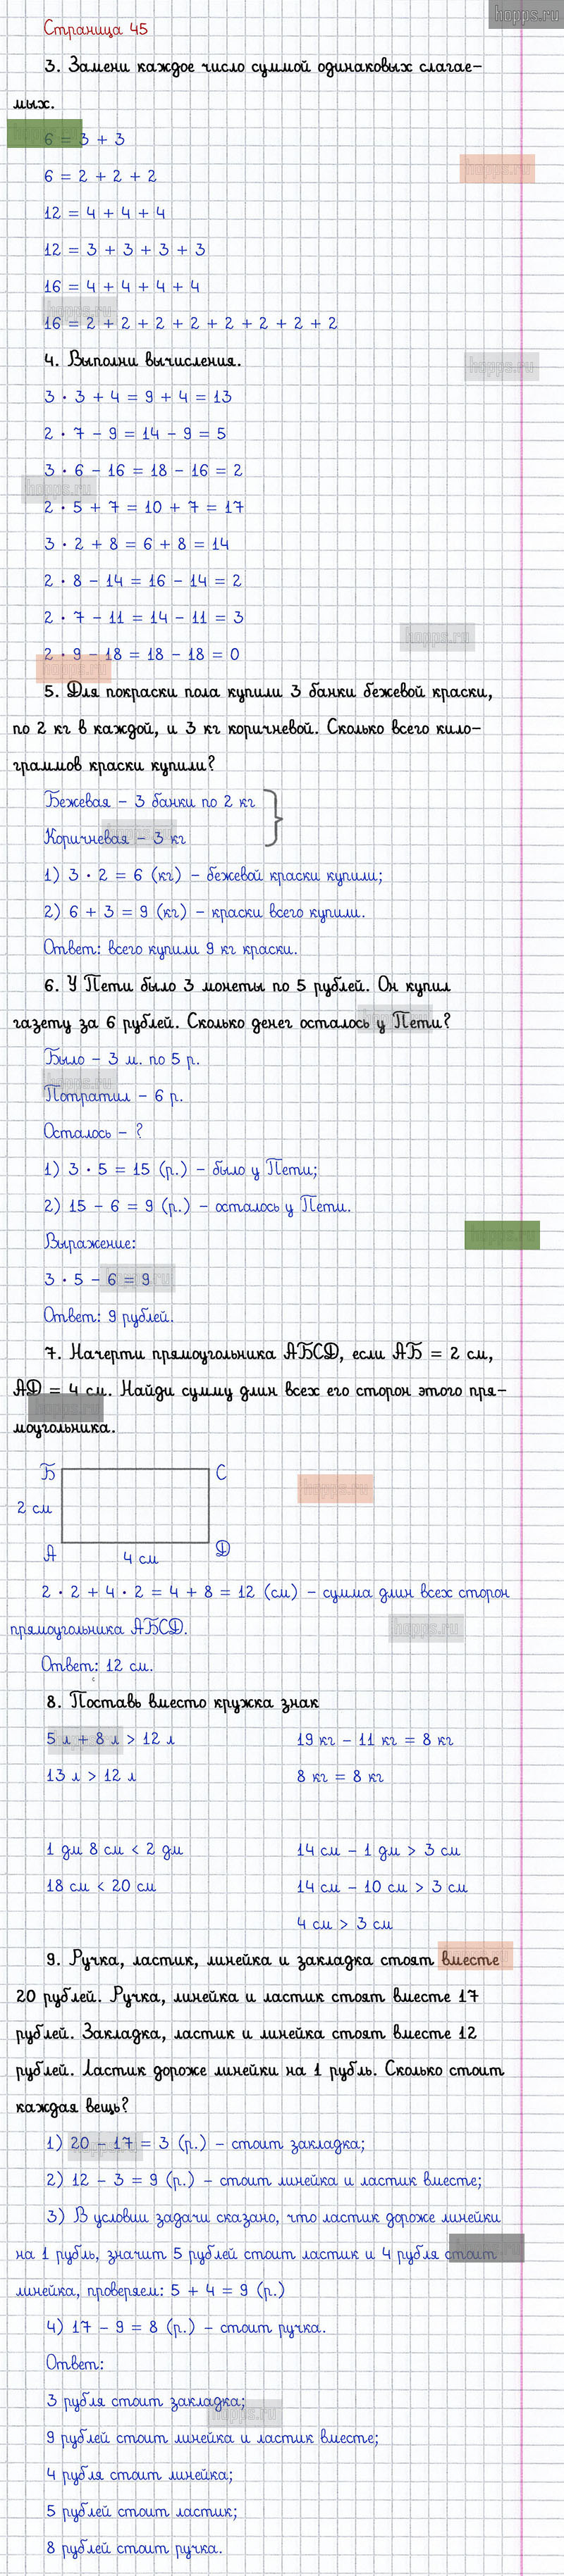 hopps.ru
Страница 45
3. Замени каждое число суммой одинаковых слагае-
мых.
6 = 3 + 3
6 = 2 + 2 + 2
hopps.ru
12 = 4 + 4 + 4
12 = 3 + 3 + 3 + 3
16 = 4 + 4 + 4 + 4
hopps.ru
16 = 2 + 2 + 2 + 2 + 2 + 2 + 2 + 2
4. Выполни вычисления.
hopps.ru
3 · 3 + 4 = 9 + 4 = 13
2 · 7 - 9 = 14 - 9 = 5
3 · 6 - 16 = 18 - 16 = 2
hopps.ru
2 · 5 + 7 = 10 + 7 = 17
3 · 2 + 8 = 6 + 8 = 14
2 · 8 - 14 = 16 - 14 = 2
2 · 7 - 11 = 14 - 11 = 3
hopps.ru
2 · 9 - 18 = 18 - 18 = 0
hopps.ru
5. Для покраски пола купили 3 банки бежевой краски,
по 2 кг в каждой, и 3 кг коричневой. Сколько всего кило-
граммов краски купили?
Бежевая - 3 банки по 2 кг
Коричневая - 3 кг
hopps.ru
1) 3 · 2 = 6 (кг) - бежевой краски купили;
2) 6 + 3 = 9 (кг) - краски всего купили.
Ответ: всего купили 9 кг краски.
6. У Пети было 3 монеты по 5 рублей. Он купил
газету за 6 рублей. Сколько денег осталось у Пети?
hopps.ru
Было - 3 м. по 5 р.
hopps.ru
Потратил - 6 р.
Осталось - ?
1) 3 · 5 = 15 (р.) - было у Пети;
2) 15 - 6 = 9 (р.) - осталось у Пети.
hopps.ru
Выражение:
3 · 5 - 6 = 9
hopps.ru
Ответ: 9 рублей.
7. Начерти прямоугольника АБСД, если АБ = 2 см,
АD = 4 см. Найди сумму длин всех его сторон этого пря-
hopps.ru
моугольника.
Б С
hopps.ru
2 см
А 4 см Д
2 · 2 + 4 · 2 = 4 + 8 = 12 (см) - сумма длин всех сторон
прямоугольника АБСД.
hopps.ru
Ответ: 12 см.
8. Поставь вместо кружка знак
5 л + 8 л > 12 л 19 кг - 11 кг = 8 кг
hopps.ru
13 л > 12 л 8 кг = 8 кг
1 дм 8 см < 2 дм 14 см - 1 дм > 3 см
18 см < 20 см 14 см - 10 см > 3 см
4 см > 3 см
9. Ручка, ластик, линейка и закладка стоят вместе
hopps.ru
20 рублей. Ручка, линейка и ластик стоят вместе 17
рублей. Закладка, ластик и линейка стоят вместе 12
рублей. Ластик дороже линейки на 1 рубль. Сколько стоит
каждая вещь?
1) 20 - 17 = 3 (р.) - стоит закладка;
hopps.ru
2) 12 - 3 = 9 (р.) - стоит линейка и ластик вместе;
3) В условии задачи сказано, что ластик дороже линейки
на 1 рубль, значит 5 рублей стоит ластик и 4 рубля стоит
hopps.ru
линейка, проверяем: 5 + 4 = 9 (р.)
4) 17 - 9 = 8 (р.) - стоит ручка.
Ответ:
3 рубля стоит закладка;
hopps.ru
9 рублей стоит линейка и ластик вместе;
4 рубля стоит линейка;
5 рублей стоит ластик;
8 рублей стоит ручка.